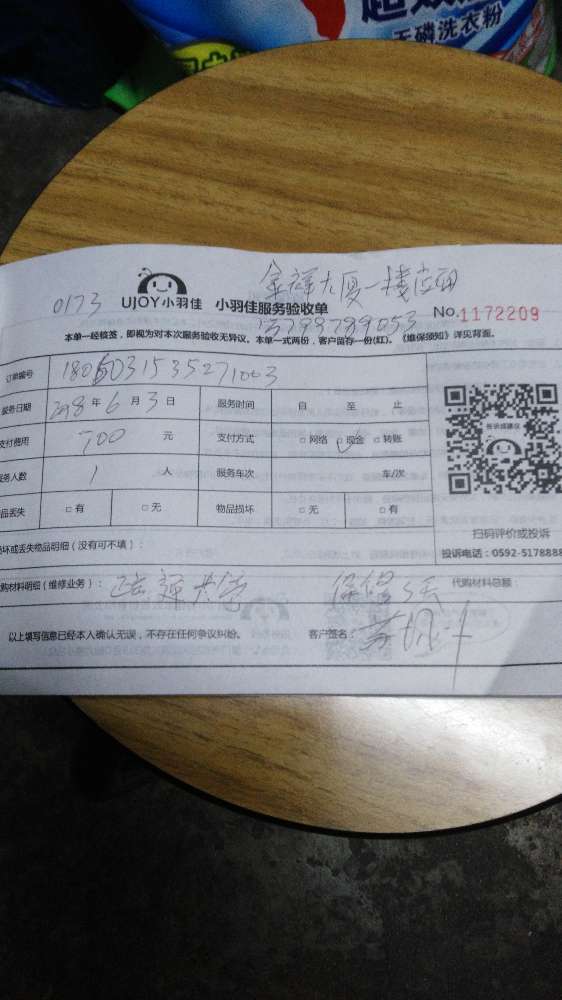 无磷洗衣粉
金祥大厦一楼店面
0173 UJOY小羽佳 小羽佳服务验收单 No.1172209
本单一经核签,即视为对本次服务验收无异议。本单一式两份,客户留存一份(红)。《维保须知》详见背面。
订单编号
服务日期 2018年6月3日 服务时间 自 至 止
支付费用 700 元 支付方式 □网络 □现金 □转账
服务人数 1 人 服务车次 车/次
物品丢失 □有 □无 物品损坏 □无 □有
投诉或建议
扫码评价或投诉
投诉电话:0592-5178888
损坏或丢失物品明细(没有可不填):
代购材料明细(维修业务): 代购材料总额:
以上填写信息已经本人确认无误,不存在任何争议纠纷。 客户签名: